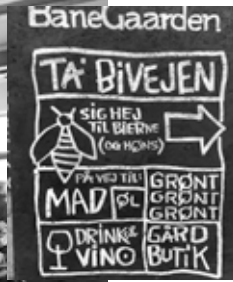 BaneGaarden
TA' BIVEJEN
SIG HEJ
TIL BIERNE
(OG HØNS)
PÅ VEJ TIL:
MAD ØL
GRØNT
GRØNT
GRØNT
DRINKS
VINO
GÅRD
BUTIK